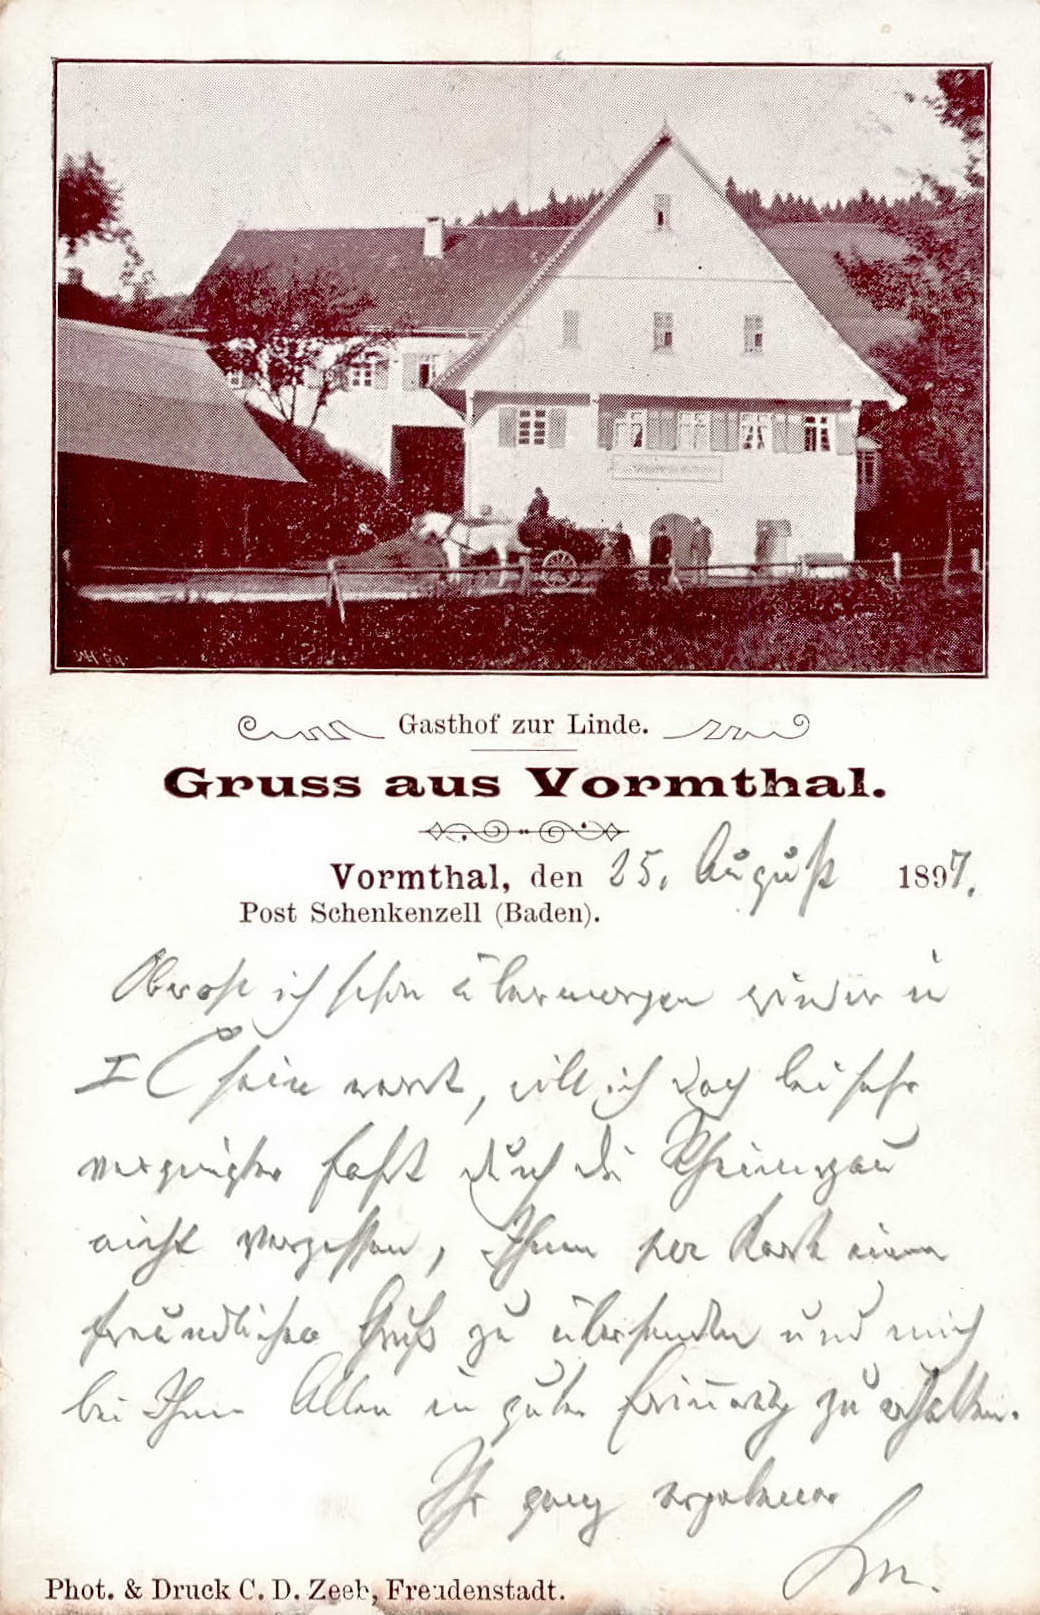 Gasthof zur Linde.
Gruss aus Vormthal.
Vormthal, den 25. August 1897.
Post Schenkenzell (Baden).
Obwohl ich schon übermorgen wieder in
sein werde, will ich doch bei sehr
vergnügter Fahrt durch die
nicht vergessen, Ihnen per Karte einen
freundlichen Gruß zu übersenden und mich
bei Ihnen Allen in guter zu erhalten.
Ihr ganz ergebener
Phot. & Druck C. D. Zeeb, Freudenstadt.